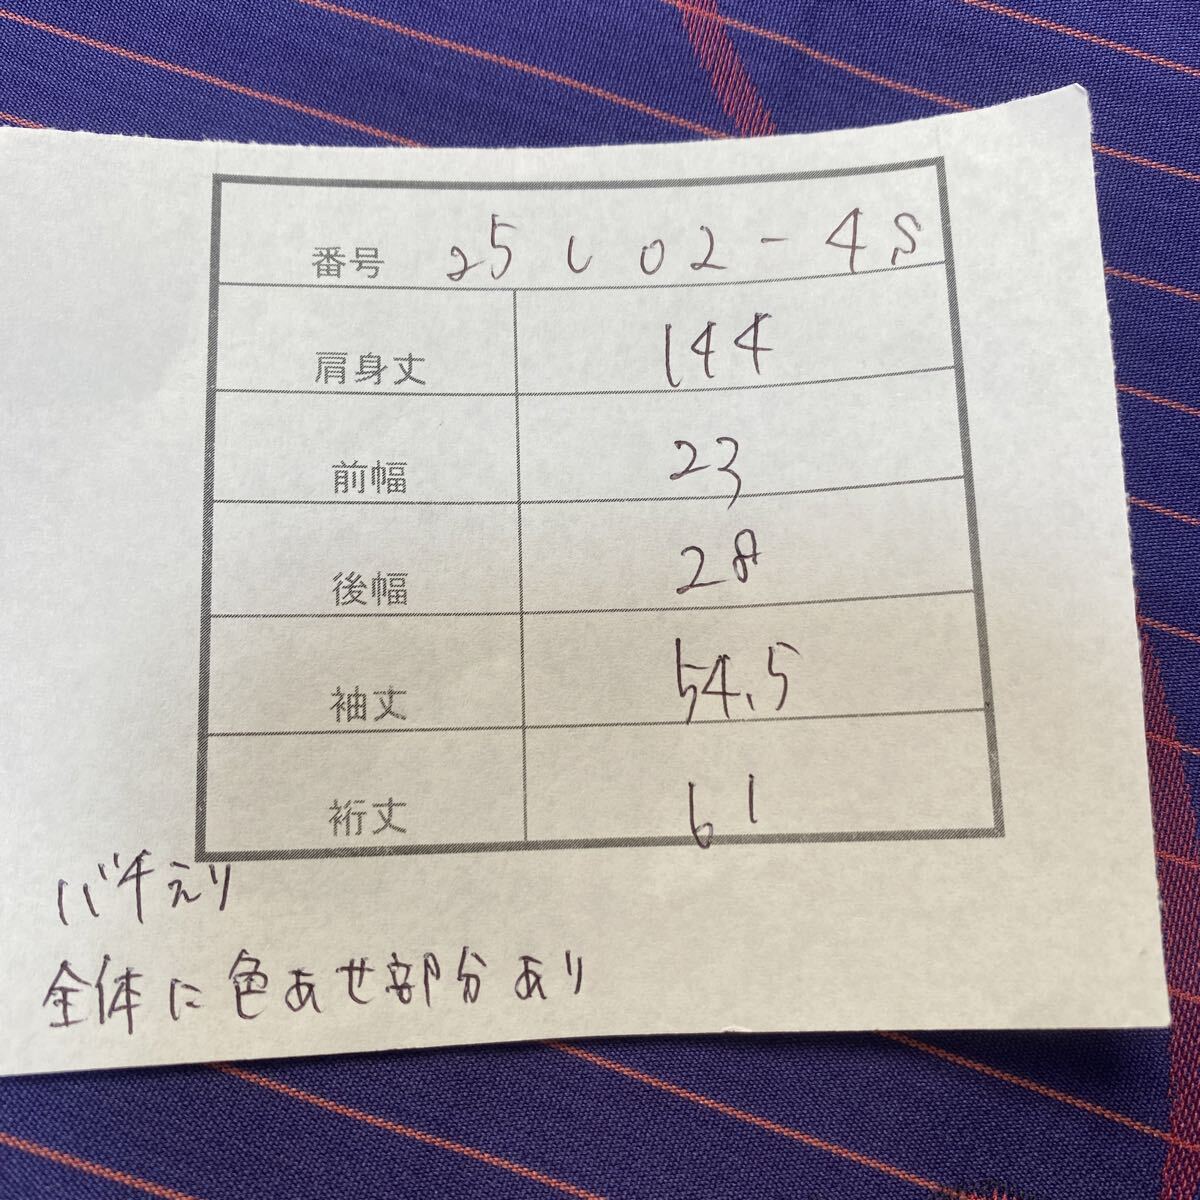 番号 25 L 02-4S
肩身丈 144
前幅 23
後幅 28
袖丈 54.5
裄丈 61
バチえり
全体に色あせ部分あり